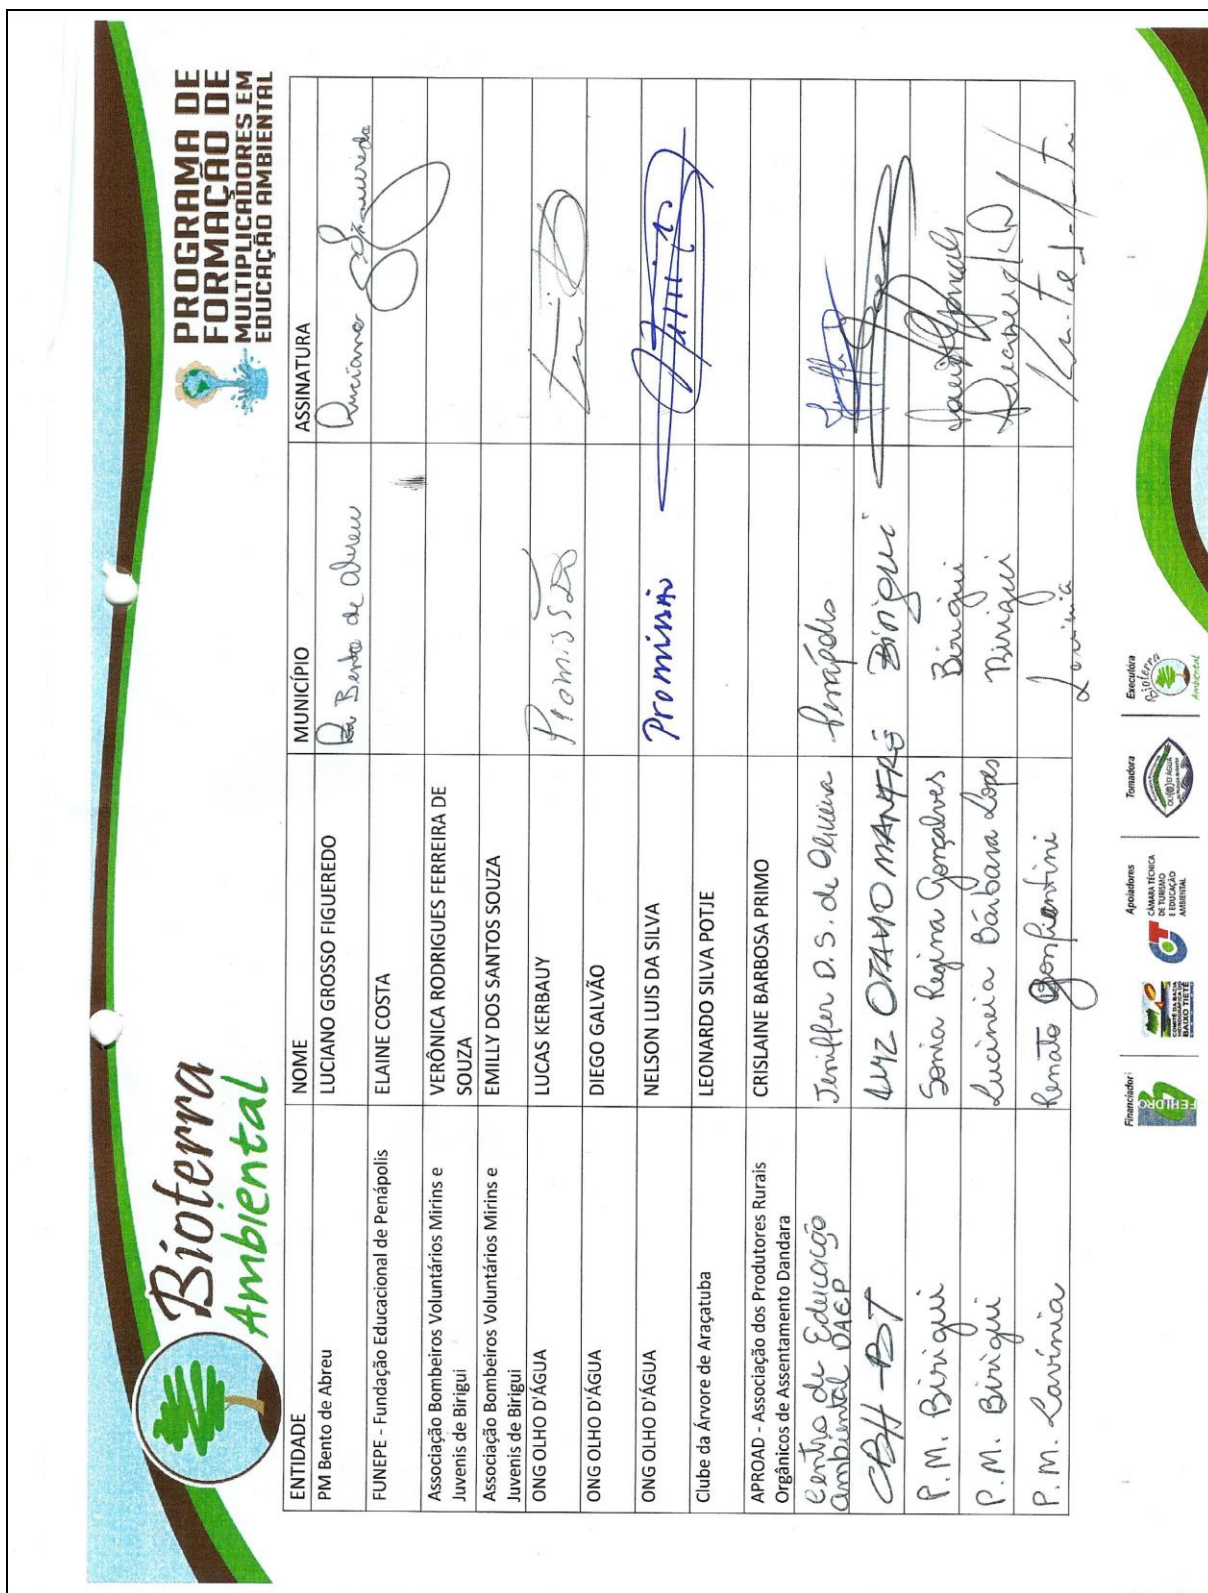 Bioterra
Ambiental
PROGRAMA DE
FORMAÇÃO DE
MULTIPLICADORES EM
EDUCAÇÃO AMBIENTAL
ENTIDADE NOME MUNICÍPIO ASSINATURA
PM Bento de Abreu LUCIANO GROSSO FIGUEREDO Bento de Abreu Luciano
FUNEPE - Fundação Educacional de Penápolis ELAINE COSTA
Associação Bombeiros Voluntários Mirins e VERÔNICA RODRIGUES FERREIRA DE
Juvenis de Birigui SOUZA
Associação Bombeiros Voluntários Mirins e EMILLY DOS SANTOS SOUZA
Juvenis de Birigui
ONG OLHO D'ÁGUA LUCAS KERBAUY Promissão
ONG OLHO D'ÁGUA DIEGO GALVÃO
ONG OLHO D'ÁGUA NELSON LUIS DA SILVA Promissão
Clube da Árvore de Araçatuba LEONARDO SILVA POTJE
APROAD - Associação dos Produtores Rurais CRISLAINE BARBOSA PRIMO
Orgânicos de Assentamento Dandara
Centro de Educação Jeniffer D. S. de Oliveira Penápolis
Ambiental DAEP
CBH - BT LUIZ OTAVIO MANFRÉ Birigui
P. M. Birigui Sonia Regina Gonçalves Birigui
P. M. Birigui Lucineia Bárbara Lopes Birigui
P. M. Lavínia Renato Bonfiantini Lavínia
Financiador: Apoiadores Tomadora Executóra
FEHIDRO
COMITÊ DA BACIA
HIDROGRÁFICA DO
BAIXO TIETÊ
CT
CÂMARA TÉCNICA
DE TURISMO
E EDUCAÇÃO
AMBIENTAL
OLHO D'ÁGUA
Bioterra
Ambiental